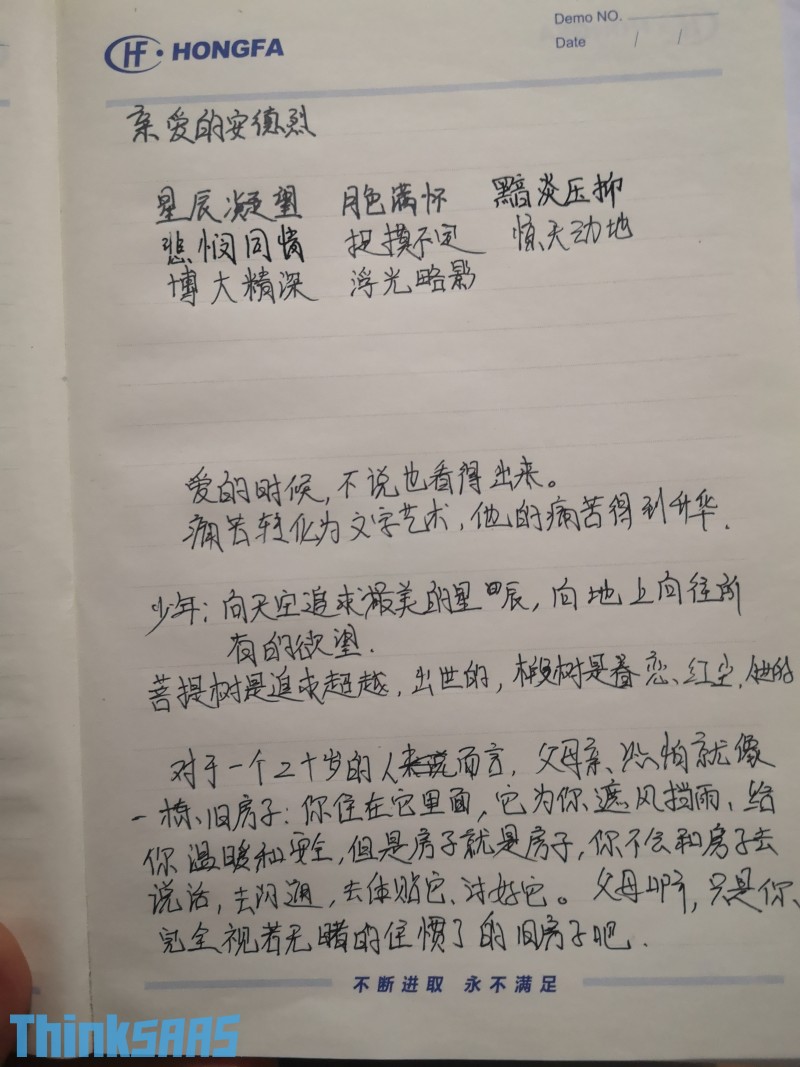 HF HONGFA
Demo NO.
Date / /
亲爱的安德烈
星辰凝望 月色满怀 黯淡压抑
悲悯同情 捉摸不定 惊天动地
博大精深 浮光略影
爱的时候,不说也看得出来。
痛苦转化为文字艺术,他的痛苦得到升华.
少年:向天空追求最美的星辰,向地上向往所
有的欲望.
菩提树是追求超越,出世的,椴树是眷恋、红尘、
对于一个二十岁的人而言,父母亲、恐怕就像
一栋旧房子:你住在它里面,它为你遮风挡雨、给
你温暖和安全,但是房子就是房子,你不会和房子去
说话,去沟通,去体贴它、讨好它。父母啊,只是你、
完全视若无睹的住惯了的旧房子吧.
不断进取 永不满足
ThinkSAAS